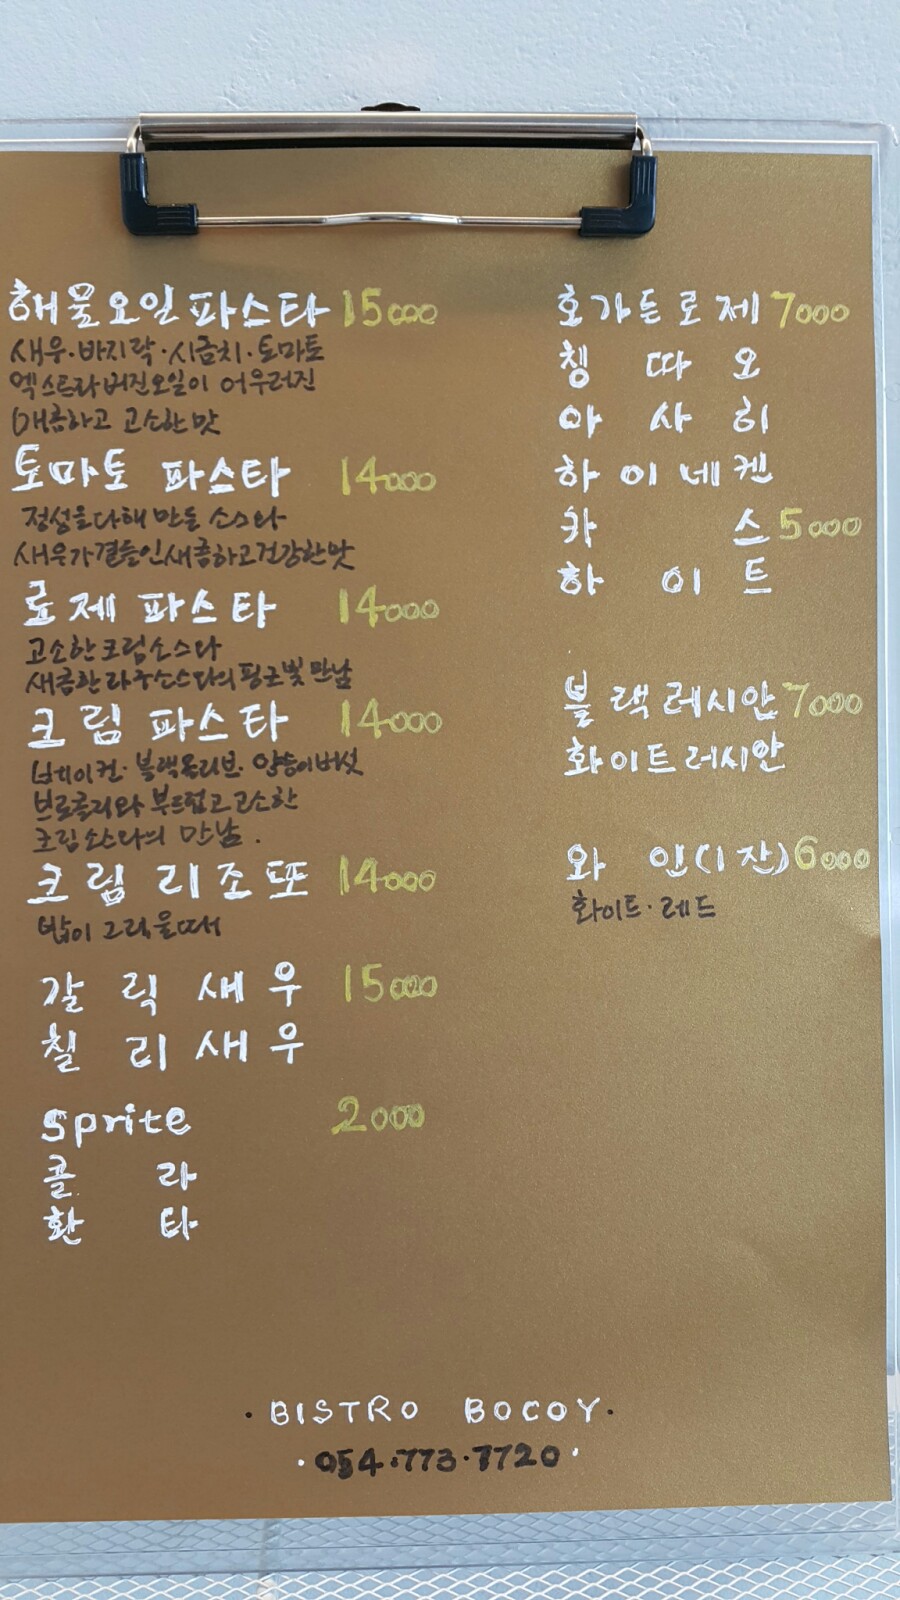 해물오일파스타 15000
새우·바지락·시금치·토마토
엑스트라버진오일이 어우러진
매콤하고 고소한 맛
토마토 파스타 14000
정성을다해 만든 소스와
새우가곁들인새콤하고건강한맛
로제 파스타 14000
고소한크림소스와
새콤한라구소스와의핑크빛만남
크림 파스타 14000
베이컨·블랙올리브·양송이버섯
브로콜리와 부드럽고고소한
크림소스와의 만남.
크림 리조또 14000
밥이 그리울때
갈릭새우 15000
칠리새우
sprite 2000
콜라
환타
호가든로제 7000
칭따오
아사히
하이네켄
카스 5000
하이트
블랙러시안 7000
화이트러시안
와인(1잔) 6000
화이트·레드
·BISTRO BOCOY·
·054·773·7720·